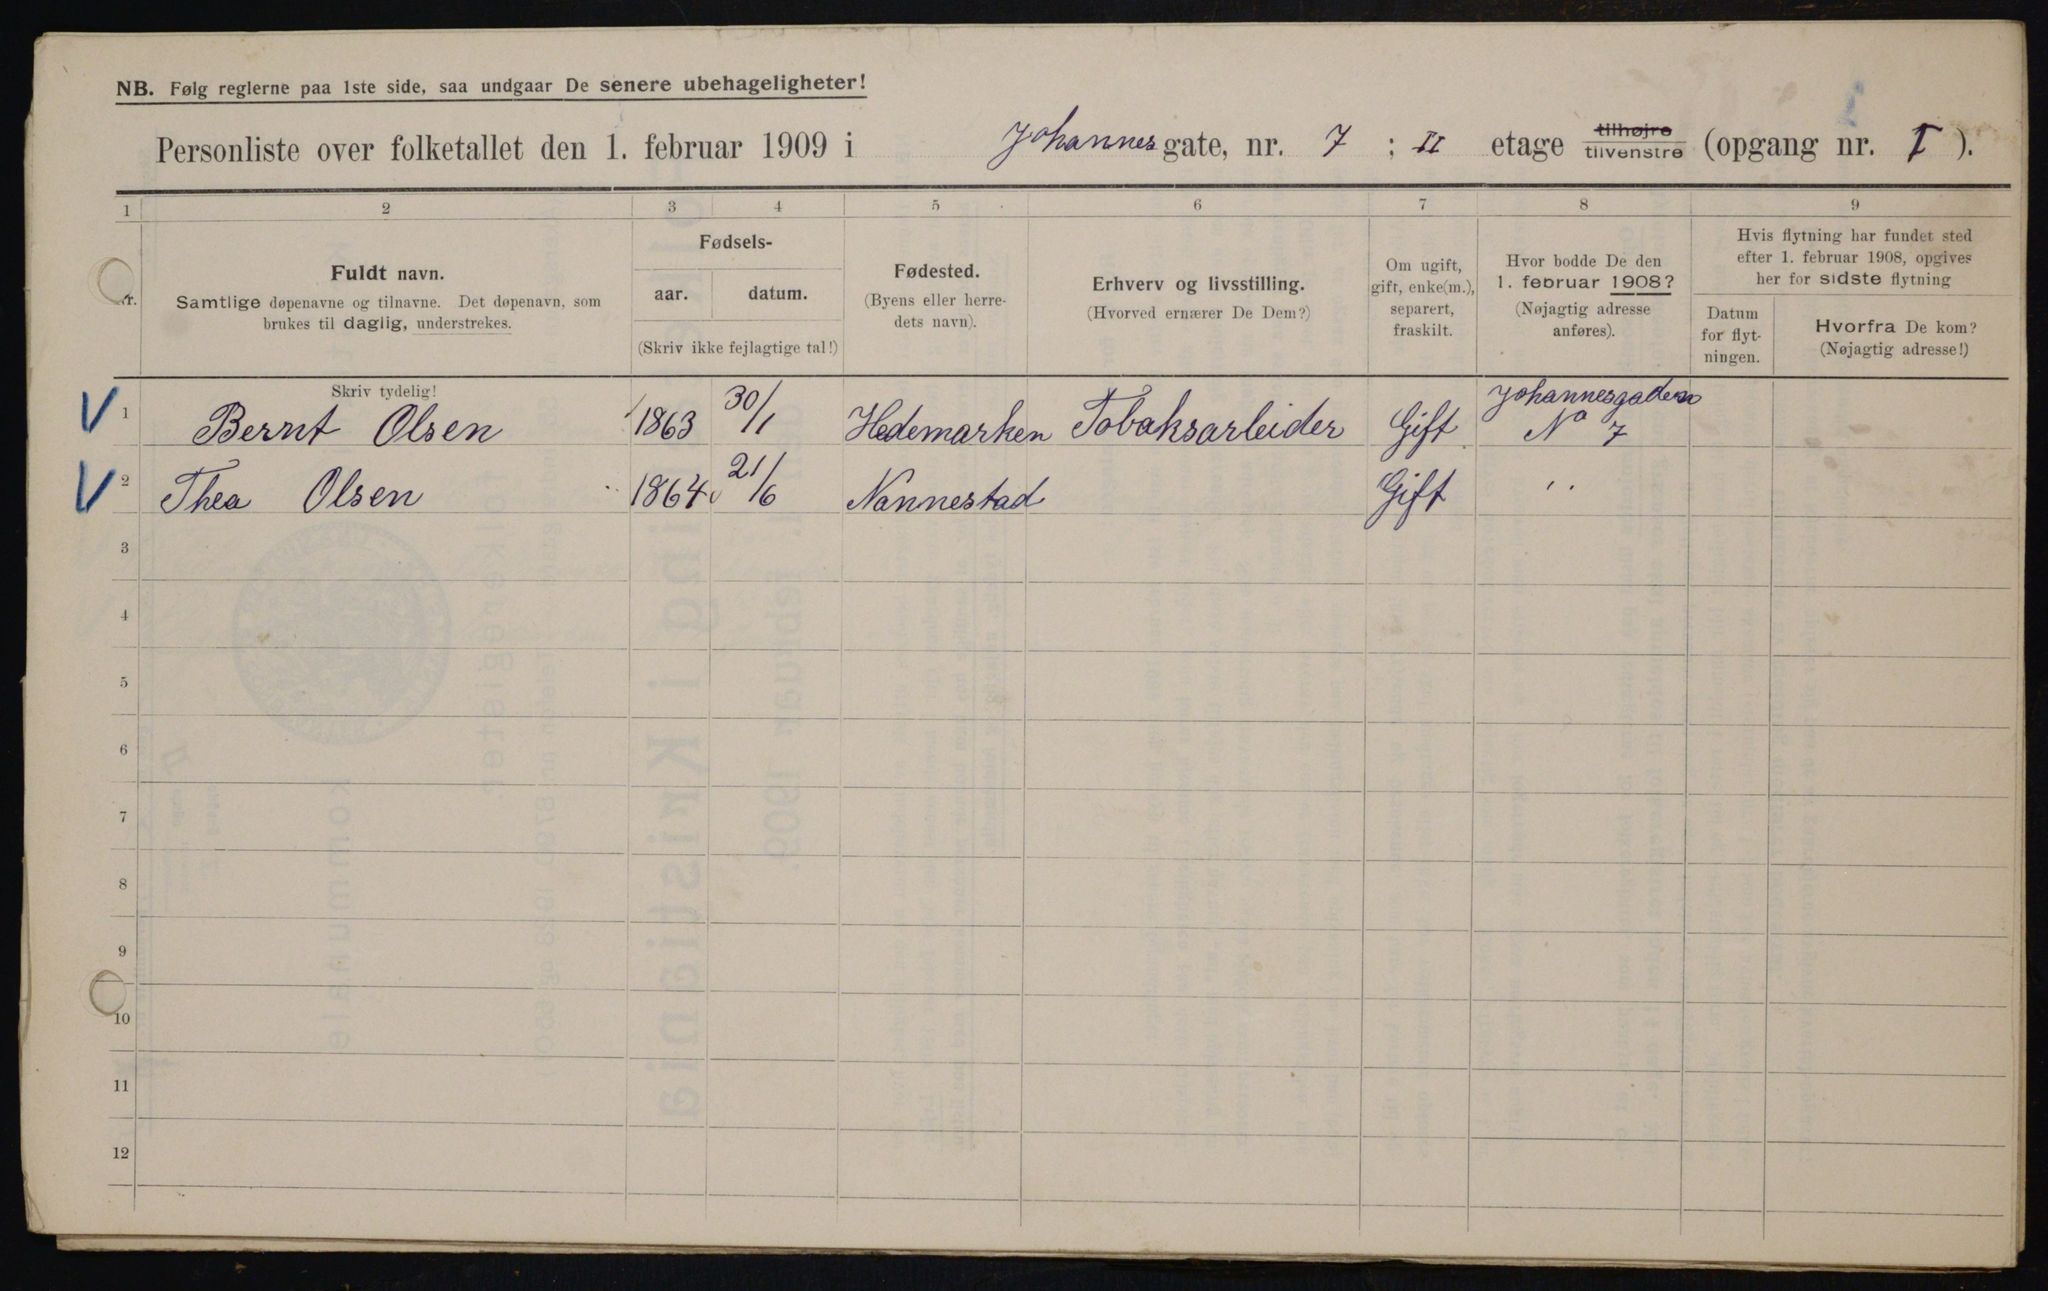 NB. Følg reglerne paa 1ste side, saa undgaar De senere ubehageligheter!
Personliste over folketallet den 1. februar 1909 i Johannes gate, nr. 7 ; II etage tilhøjre tilvenstre (opgang nr. I ).
1 2 3 4 5 6 7 8 9
nr.
Fuldt navn.
Samtlige døpenavne og tilnavne. Det døpenavn, som
brukes til daglig, understrekes.
Fødsels-
aar. datum.
(Skriv ikke fejlagtige tal!)
Fødested.
(Byens eller herre-
dets navn).
Erhverv og livsstilling.
(Hvorved ernærer De Dem?)
Om ugift,
gift, enke(m.),
separert,
fraskilt.
Hvor bodde De den
1. februar 1908?
(Nøjagtig adresse
anføres).
Hvis flytning har fundet sted
efter 1. februar 1908, opgives
her for sidste flytning
Datum
for flyt-
ningen.
Hvorfra De kom?
(Nøjagtig adresse!)
Skriv tydelig!
V 1 Bernt Olsen 1863 30/1 Hedemarken Tobaksarleider Gift Johannesgaden No 7
V 2 Thea Olsen 1864 21/6 Nannestad Gift ,,
3
4
5
6
7
8
9
10
11
12